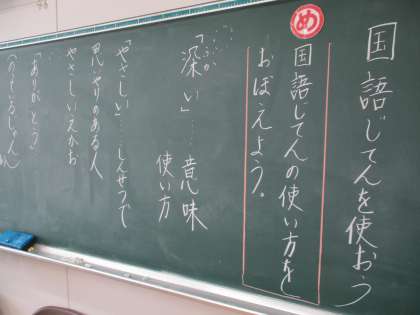 国語じてんを使おう
め
国語じてんの使い方を
おぼえよう。
「深い」…意味
ふか
使い方
「やさしい」…しんせつで
思いやりのある人
やさしいえがお
「ありがとう」